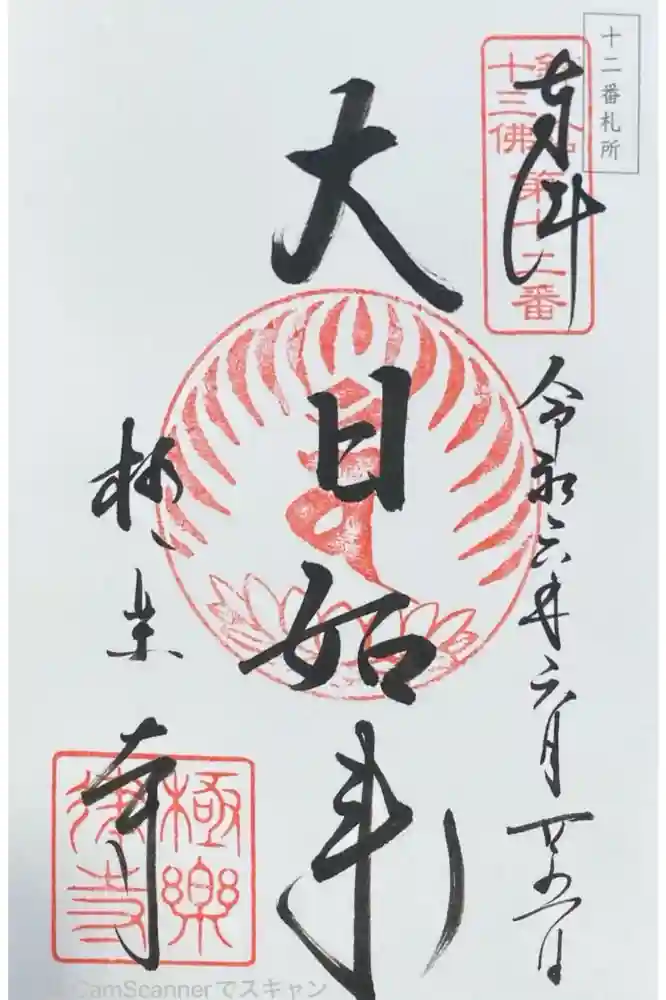 十二番札所
奉拝
十三佛
第十二番
令和六年六月
大日如来
極楽寺
極樂
律寺
CamScannerでスキャン